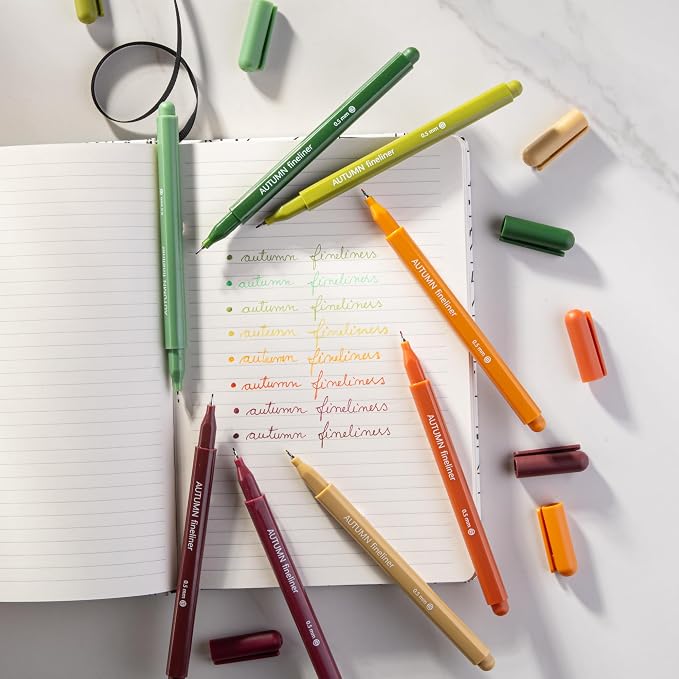 AUTUMN fineliner 0.5 mm
AUTUMN fineliner 0.5 mm
AUTUMN fineliner
autumn fineliners
autumn fineliners
autumn fineliners
autumn fineliners
autumn fineliners
autumn fineliners
autumn fineliners
autumn fineliners
AUTUMN fineliner 0.5 mm
AUTUMN fineliner 0.5 mm
AUTUMN fineliner 0.5 mm
AUTUMN fineliner 0.5 mm
AUTUMN fineliner 0.5 mm